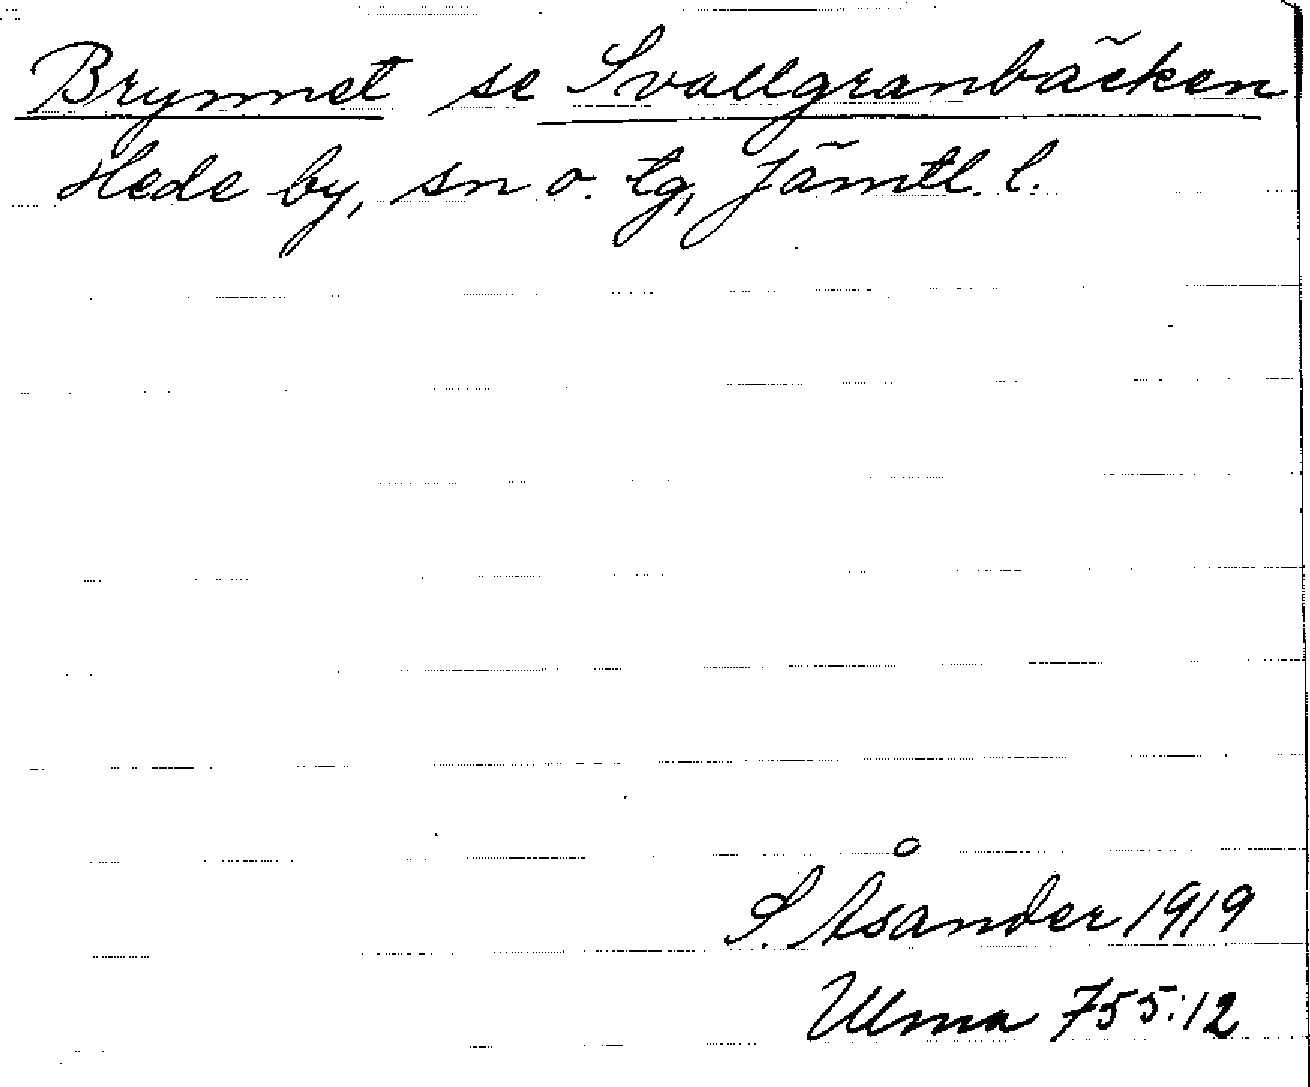 Brynnet se Svallgranbäcken
Hede by, sn o. tg, Jämtl. l.
S. Åsander 1919
Ulma 755:12